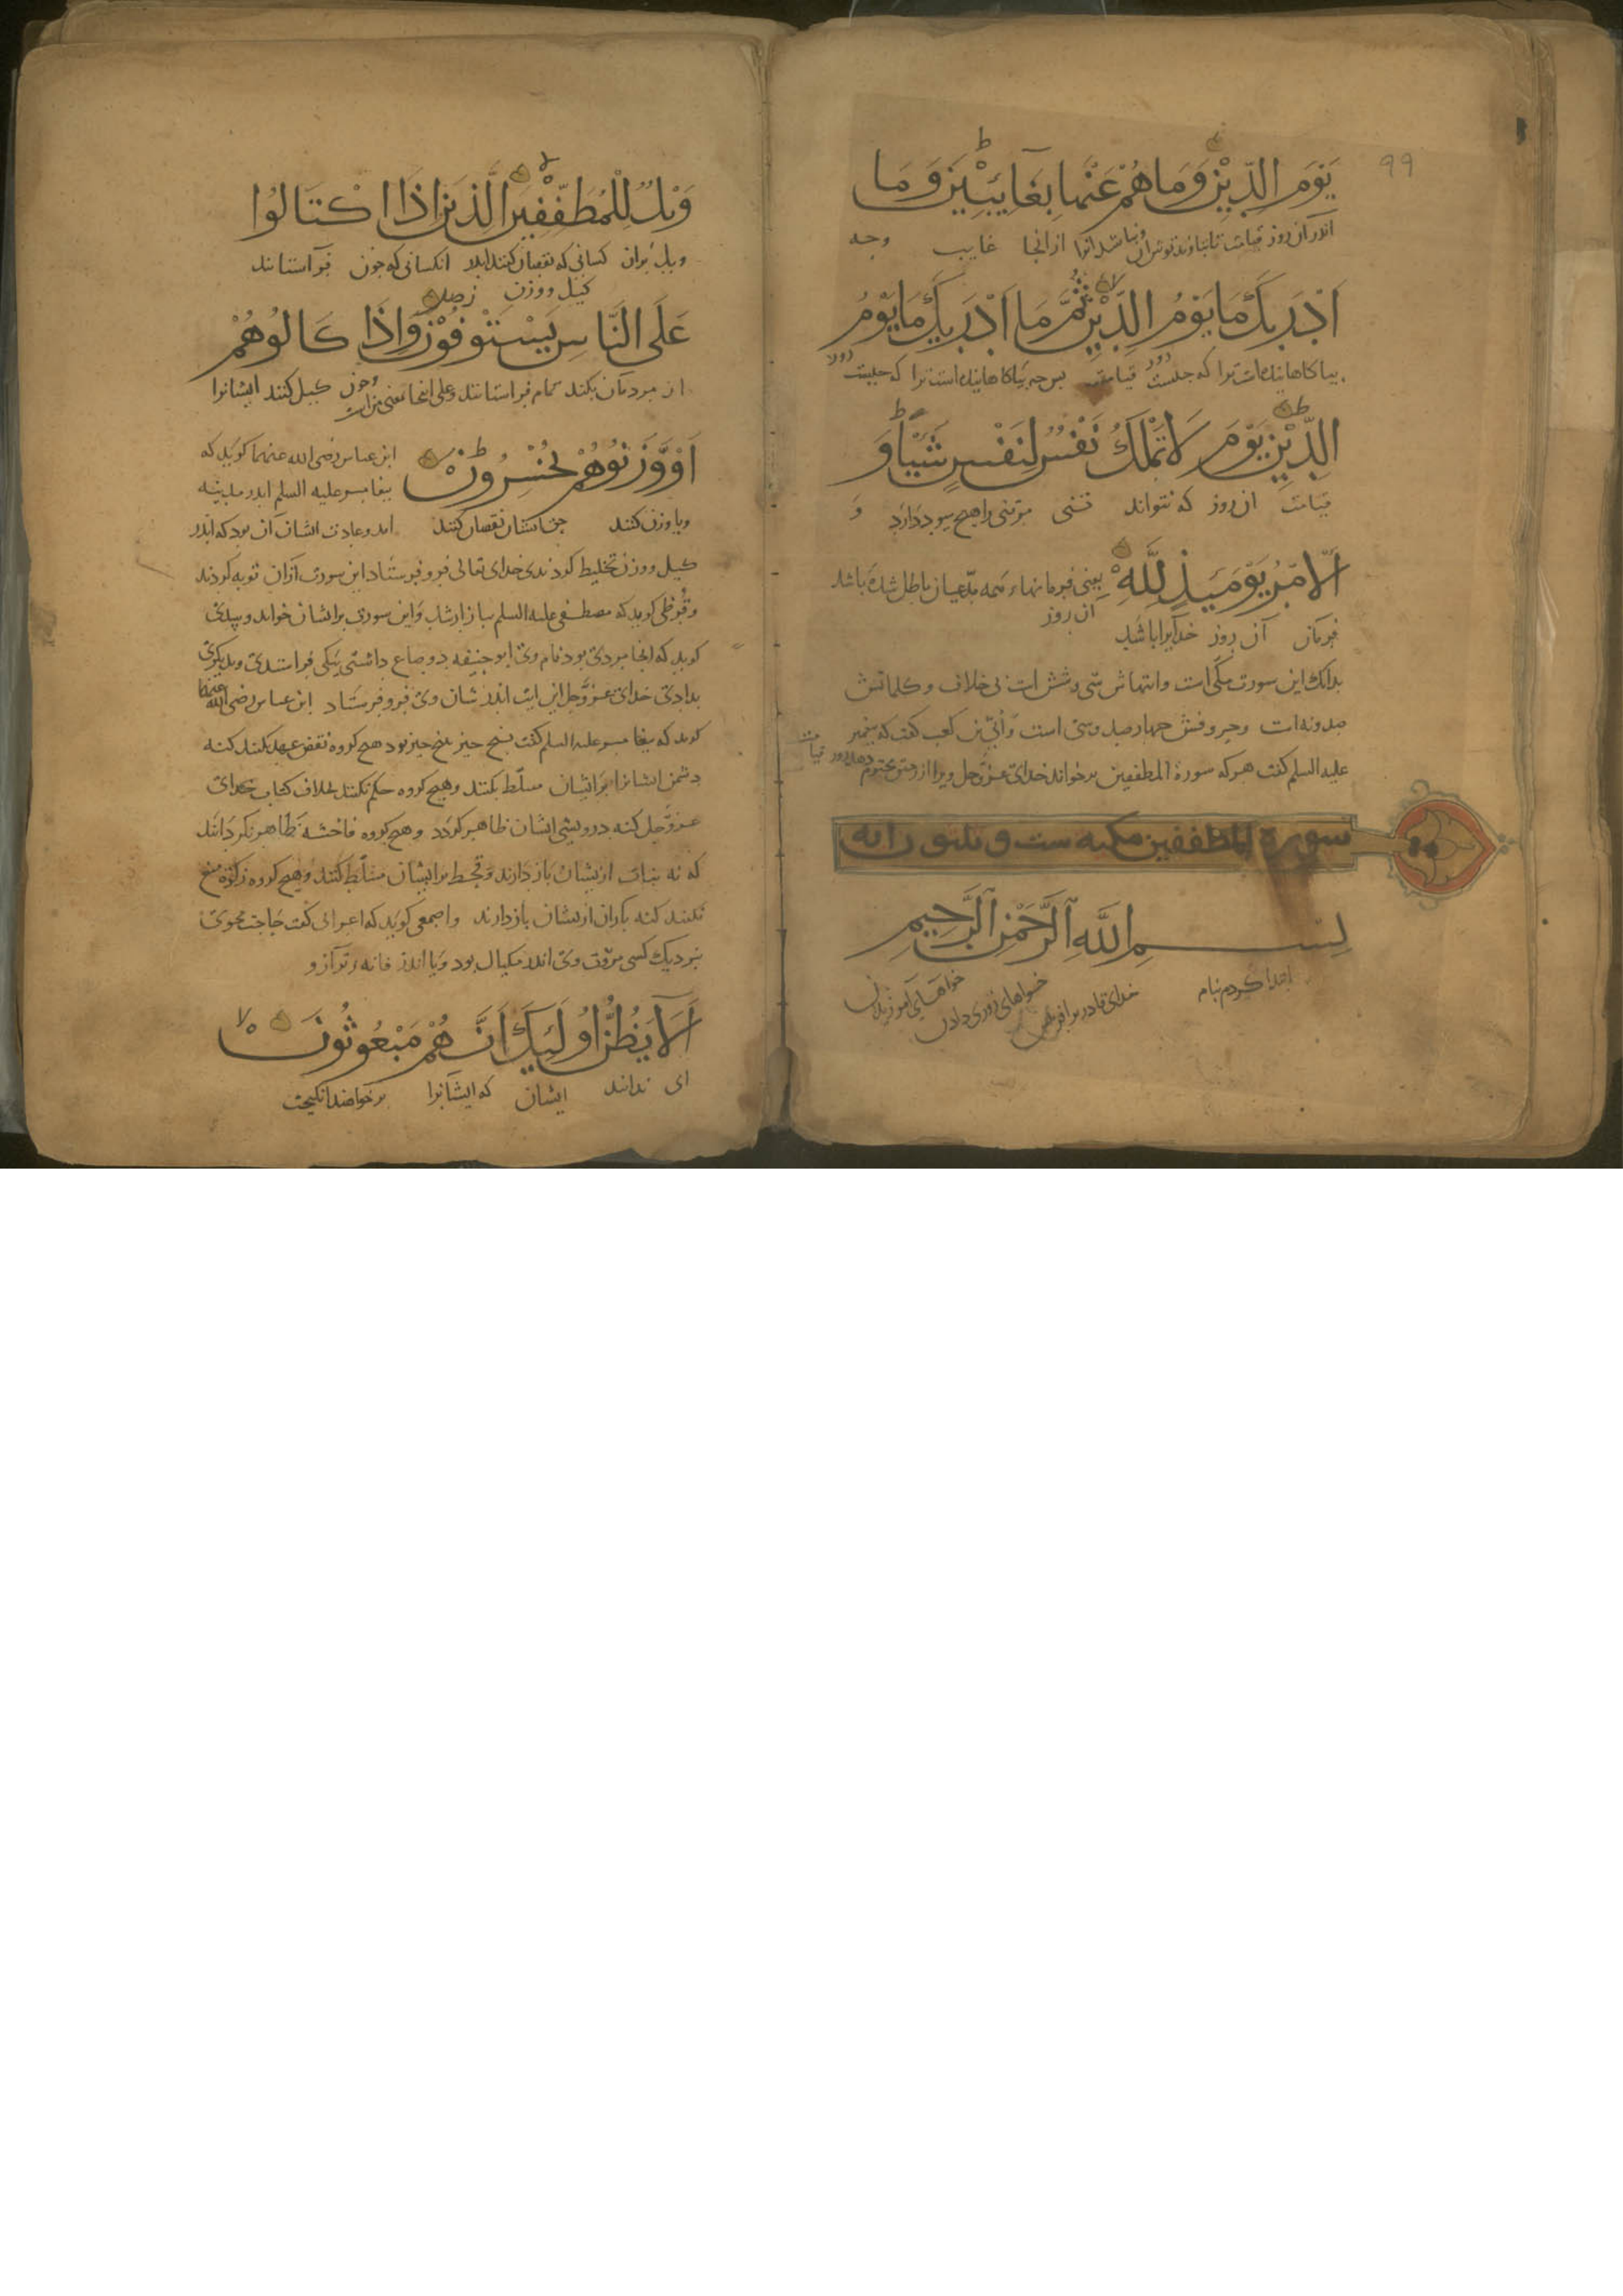 ٩٩
يَوْمَ الدِّيْنِ وَمَا هُمْ عَنْهَا بِغَآئِبِيْنَ وَمَا
اندر آن روز قیامت از انجا غایب وجه
اَدْرَيكَ مَا يَوْمُ الدِّيْنِ ثُمَّ مَا اَدْرَيكَ مَا يَوْمُ
ترا که جیست قیامت بس جه ترا که جیست
الدِّيْنِ يَوْمَ لَا تَمْلِكُ نَفْسٌ لِنَفْسٍ شَيْئًا وَ
قیامت ان روز که نتواند تنی مرتنی را هیچ سود دارد وَ
اَلْاَمْرُ يَوْمَئِذٍ لِلّٰهِ یعنی فرمانهاء همه مدّعیان باطل شده باشد
ان روز
فرمان آن روز خدایرا باشد
بدانک این سورت مکّی است وایتهاش سی وشش است بی خلاف وکلماتش
صدونه است وحروفش جهارصد وسی است واُبَیّ بن کعب کفت که بیغمبر
علیه السلم کفت هرکه سورة المطففین برخواند خدای عزّوجل ویرا از رحیق مختوم دهد روز قیامت
سورة المطففین مکیه ست وثلثون اية
بِسْمِ اللّٰهِ الرَّحْمٰنِ الرَّحِيمِ
ابتدا کردم بنام خدای قادر بر افرینش
وَيْلٌ لِلْمُطَفِّفِيْنَ الَّذِيْنَ اِذَا اكْتَالُوْا
ویل بران کسانی که نقصان کنند انکسانی که جون فرا ستانند
کیل ووزن
عَلَى النَّاسِ يَسْتَوْفُوْنَ وَاِذَا كَالُوْهُمْ
از مردمان تمام فرا ستانند وعلی انجا بمعنی من است وجون کیل کنند ایشانرا
اَوْ وَّزَنُوْهُمْ يُخْسِرُوْنَ ابن عباس رضی الله عنهما کوید که
بیغامبر علیه السلم اندر مدینه
ویا وزن کنند نقصان کنند امد وعادت ایشان آن بود که اندر
کیل ووزن تخلیط کردندی خدای تعالی فرو فرستاد این سورت ازان توبه کردند
وقُرَظی کوید که مصطفی علیه السلم ببازار شد واین سورت بر ایشان خواند
کوید که انجا مردی بود نام وی ابو جنیفه دو صاع داشتی بیکی فراستدی وبدیکری
بدادی خدای عزّوجل این ایت اندر شان وی فرو فرستاد ابن عباس رضی الله عنهما
کوید که بیغامبر علیه السلم کفت بنج جیز به بنج جیز بود هیچ کروه نقض عهد نکنند کنه
دشمن ایشانرا بر ایشان مسلّط بکنند وهیچ کروه حکم نکنند بخلاف کتاب خدای
عزّوجل کنه درویشی ایشان ظاهر کردد وهیچ کروه فاحشه ظاهر نکردانند
که نه نبات ازیشان باز دارند وقحط بر ایشان مسلّط کنند وهیچ کروه زکوة منع
نکنند کنه باران ازیشان باز دارند واصمعی کوید که اعرابی کفت حاجت مجوی
بنزدیک کسی مروّت وی اندر مکیال بود ویا اندر ترازو
اَلَا يَظُنُّ اُولٰئِكَ اَنَّهُمْ مَبْعُوْثُوْنَ
ای ندانند ایشان که ایشانرا برخواهند انکیخت